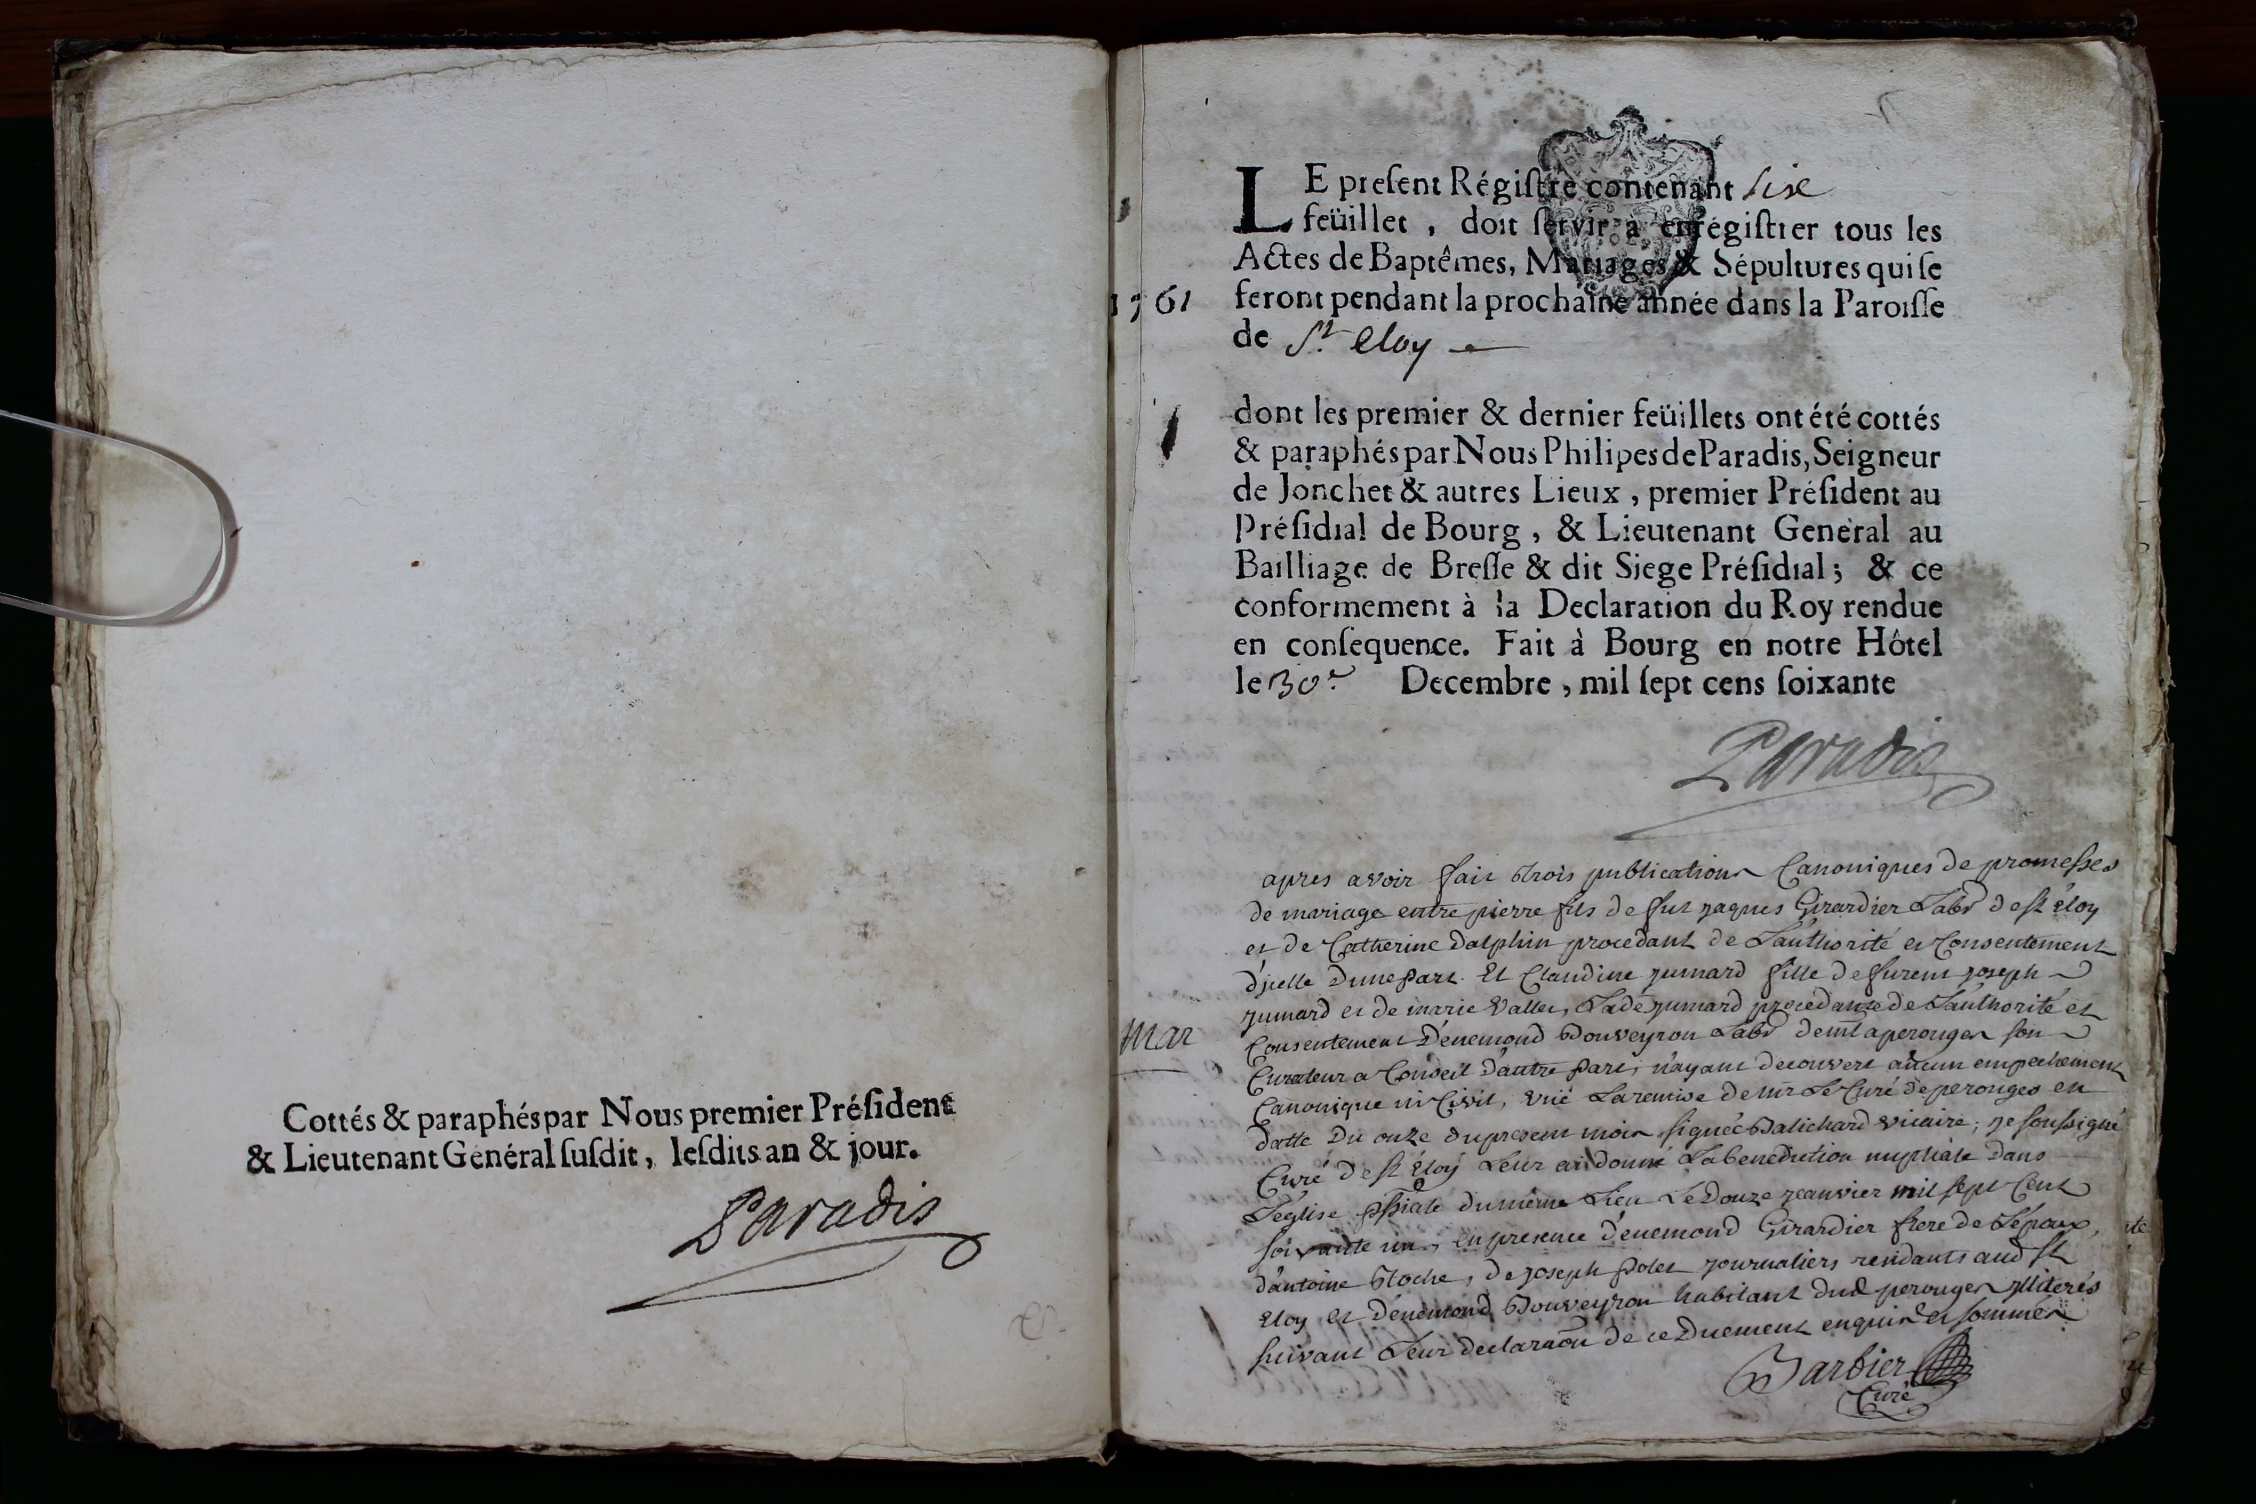 Cottés & paraphés par Nous premier Préſident
& Lieutenant Général ſuſdit, leſdits an & jour.
Paradis
LE preſent Régiſtre contenant sixe
feüillet , doit ſervir à enrégiſtrer tous les
Actes de Baptêmes, Mariages & Sépultures qui ſe
1761
feront pendant la prochaine année dans la Paroiſſe
de St. eloy
dont les premier & dernier feüillets ont été cottés
& paraphés par Nous Philipes de Paradis, Seigneur
de Jonchet & autres Lieux, premier Préſident au
Préſidial de Bourg, & Lieutenant General au
Bailliage de Breſſe & dit Siege Préſidial; & ce
conformement à la Declaration du Roy rendue
en conſequence. Fait à Bourg en notre Hôtel
le 30e. Decembre, mil ſept cens ſoixante
Paradis
apres avoir fait trois publications Canoniques de promesses
de mariage entre pierre fils de fut jaques Girardier Labr de st éloy
et de Catherine dalphin procedant de L'authorité et Consentement
d'jcelle D'une part. Et Claudine jumard fille de furent joseph
jumard et de marie Vallet, Lade jumard procedante de L'authorité et
mar
Consentement D'enemond Douveyron Labr perouges son
Curateur a Conseil d'autre part; n'ayant decouvert aucun empechement
Canonique ni Civil, vüe La remise de mr Le Curé de perouges en
datte Du onze du present mois signée vicaire; je soussigné
Curé de st Eloÿ Leur ai donné La benediction nuptiale dans
L'église du même Lieu Le Douze jeanvier mil sept Cent
soixante un, en presence d'enemond Girardier frere de L'époux,
d'antoine de joseph polet journaliers rendants aud st
Eloy, et D'enemond Douveyron habitant dud perouges jlliterés
suivant Leur declaraõn de ce Duement enquis et sommés
Barbier
Curé